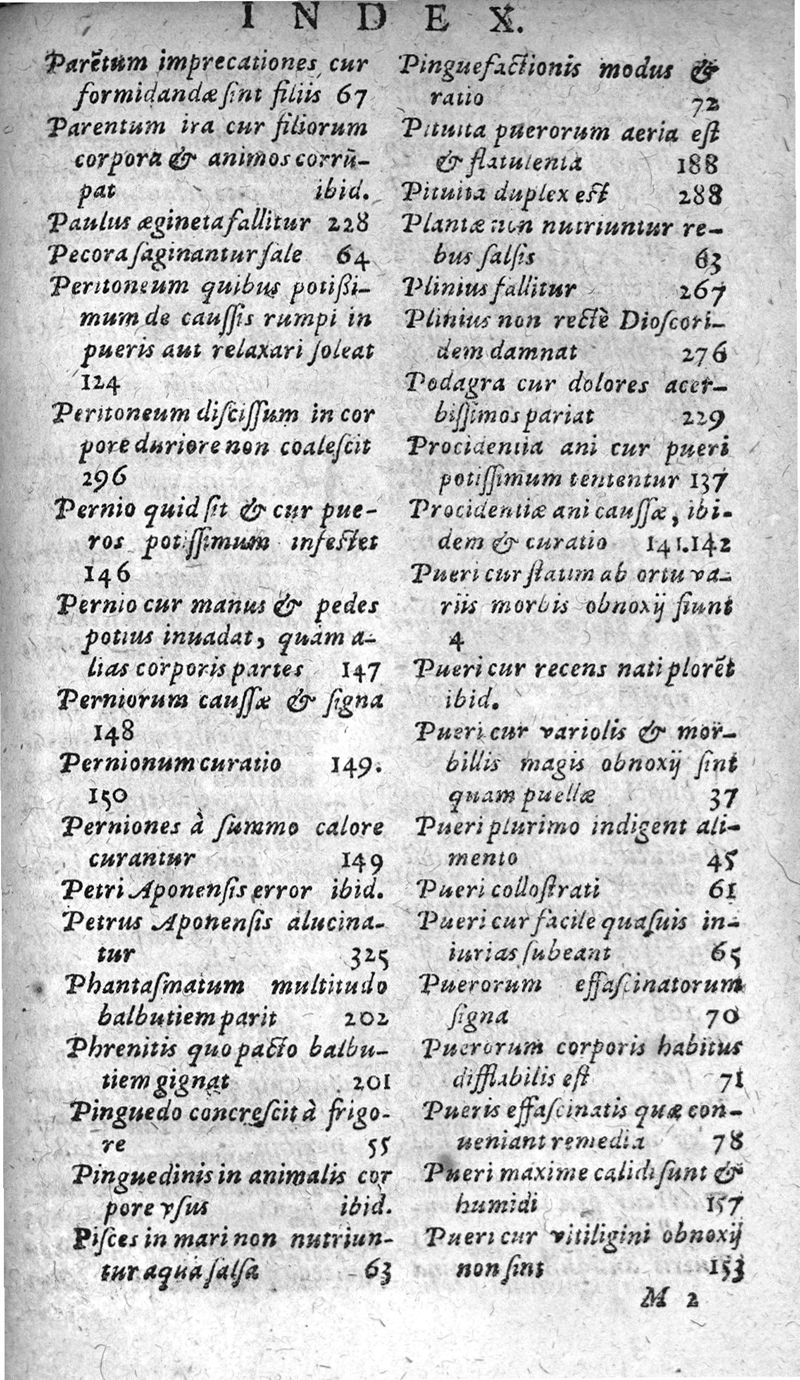 INDEX.
Parẽtum imprecationes cur
formidandæ ſint filiis 67
Parentum ira cur filiorum
corpora & animos corrū-
pat ibid.
Paulus ægineta fallitur 228
Pecora ſaginantur ſale 64
Peritoneum quibus potißi-
mum de cauſſis rumpi in
pueris aut relaxari ſoleat
124
Peritoneum diſciſſum in cor
pore duriore non coaleſcit
296
Pernio quid ſit & cur pue-
ros potiſſimum infeſtet
146
Pernio cur manus & pedes
potius inuadat, quàm a-
lias corporis partes 147
Perniorum cauſſæ & ſigna
148
Pernionum curatio 149.
150
Perniones à ſummo calore
curantur 149
Petri Aponenſis error ibid.
Petrus Aponenſis alucina-
tur 325
Phantaſmatum multitudo
balbutiem parit 202
Phrenitis quo pacto balbu-
tiem gignat 201
Pinguedo concreſcit à frigo-
re 55
Pinguedinis in animalis cor
pore vſus ibid.
Piſces in mari non nutriun-
tur aqua ſalſa 63
Pinguefactionis modus &
ratio 72
Pituita puerorum aeria eſt
& flatulenta 188
Pituita duplex eſt 288
Plantæ non nutriuntur re-
bus ſalſis 63
Plinius fallitur 267
Plinius non rectè Dioſcori-
dem damnat 276
Podagra cur dolores acer-
biſſimos pariat 229
Procidentia ani cur pueri
potiſſimum tententur 137
Procidentiæ ani cauſſæ, ibi-
dem & curatio 141.142
Pueri cur ſtatim ab ortu va-
riis morbis obnoxij fiunt
4
Pueri cur recens nati plorẽt
ibid.
Pueri cur variolis & mor-
billis magis obnoxij ſint
quam puellæ 37
Pueri plurimo indigent ali-
mento 45
Pueri colloſtrati 61
Pueri cur facile quaſuis in-
iurias ſubeant 65
Puerorum effaſcinatorum
ſigna 70
Puerorum corporis habitus
difflabilis eſt 71
Pueris effaſcinatis quæ con-
ueniant remedia 78
Pueri maxime calidi ſunt &
humidi 157
Pueri cur vitiligini obnoxij
non ſint 153
M 2